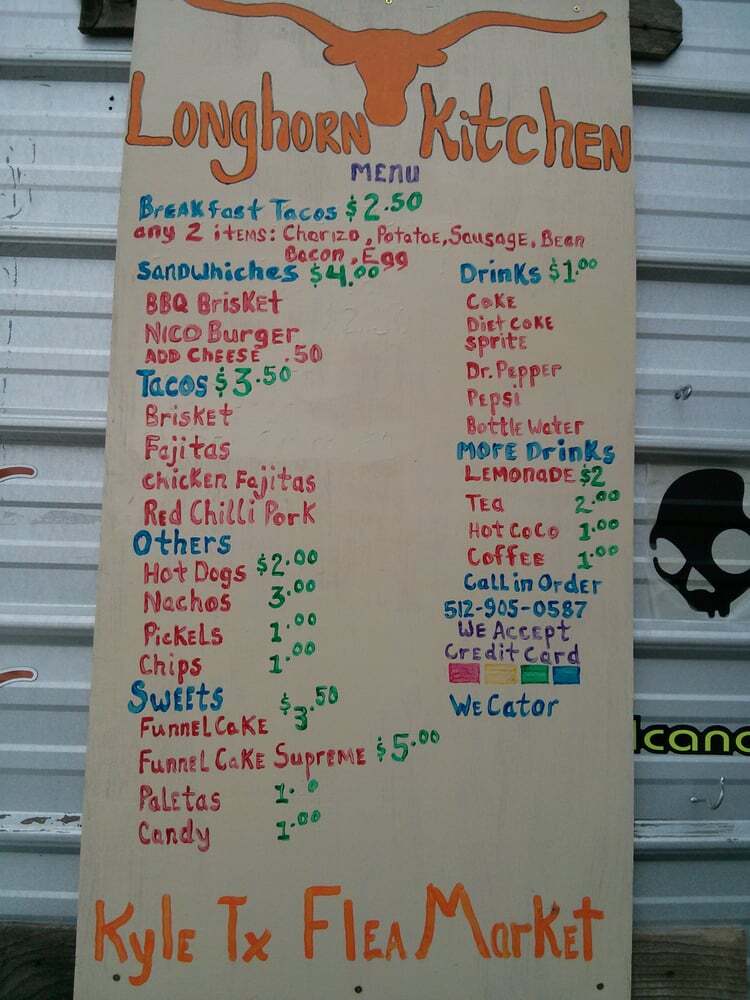 Longhorn Kitchen
MENU
Breakfast Tacos $2.50
any 2 items: Chorizo, Potatoe, Sausage, Bean
Bacon, Egg
Sandwhiches $4.00
BBQ Brisket
NICO Burger
ADD CHEESE .50
Tacos $3.50
Brisket
Fajitas
chicken Fajitas
Red Chilli Pork
Others
Hot Dogs $2.00
Nachos 3.00
Pickels 1.00
Chips 1.00
Sweets
Funnel Cake $3.50
Funnel Cake Supreme $5.00
Paletas 1.0
Candy 1.00
Drinks $1.00
Coke
Diet Coke
Sprite
Dr. Pepper
Pepsi
Bottle Water
More Drinks
Lemonade $2
Tea 2.00
Hot CoCo 1.00
Coffee 1.00
Call in Order
512-905-0587
We Accept
Credit Card
We Cator
Kyle Tx Flea Market
lcano